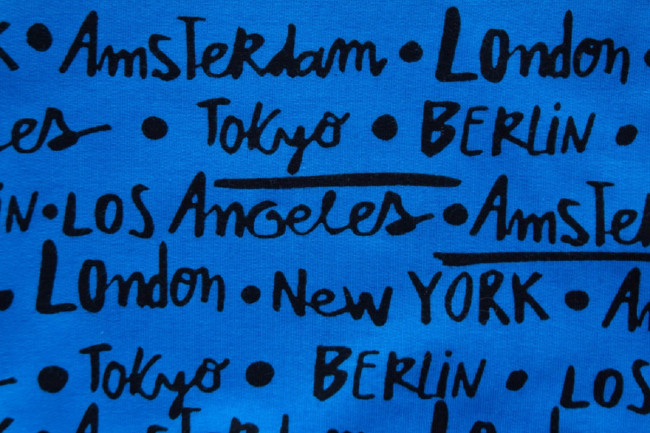 K • Amsterdam • London •
les • Tokyo • BERLiN •
iN • LOS Angeles • Amster
• London • New YORK • Am
• Tokyo • BERLiN • LOS
Amsterdam • London